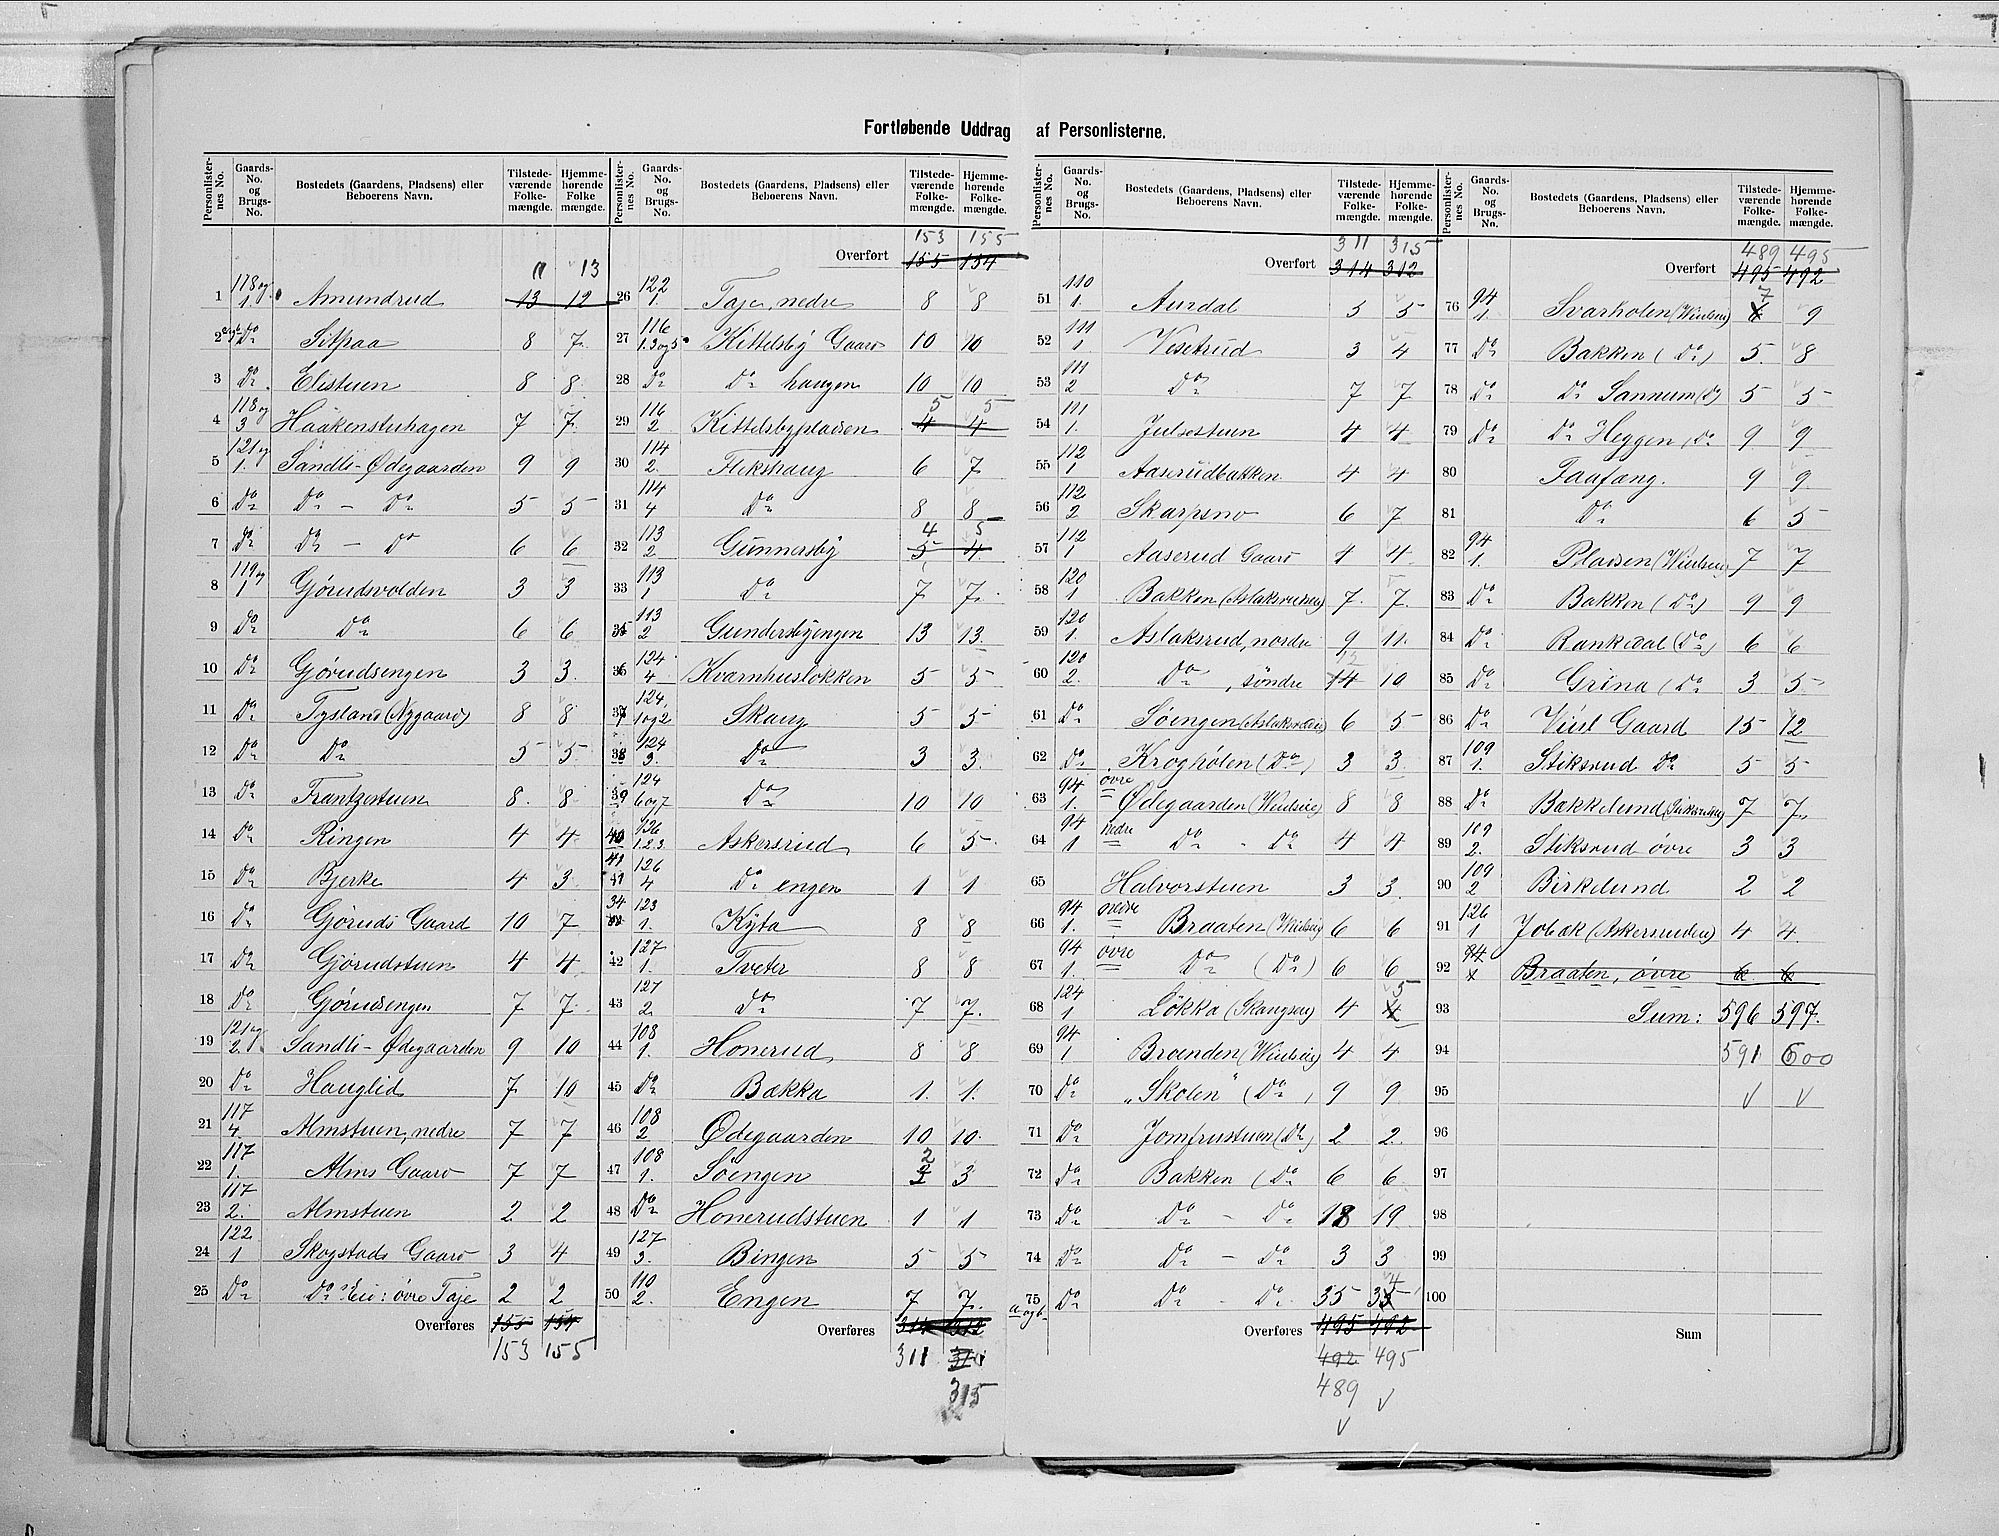 Fortløbende Uddrag af Personlisterne.
Personlister-nes No. Gaards-No. og Brugs-No. Bostedets (Gaardens, Pladsens) eller Beboerens Navn. Tilstede-værende Folke-mængde. Hjemme-hørende Folke mængde.
11 13
1 118 og 1. Amundrud 13 12
2 Do Sitpaa 8 7
3 Do Elistuen 8 8
4 118 og 3 Haakenstuhagen 7 7
5 121 og 1. Sandli-Ødegaarden 9 9
6 Do Do - Do 5 5
7 Do Do - Do 6 6
8 119 og 1 Gjørudsvolden 3 3
9 Do Do 6 6
10 Do Gjørudsengen 3 3.
11 Do Tysland (Nygaard) 8 8
12 Do Do 5 5
13 Do Frantzestuen 8. 8
14 Do Ringen 4 4
15 Do Bjerke 4 3
16 Do Gjøruds Gaard 10 7
17 Do Gjørudstuen 4 4
18 Do Gjørudsengen 7 7
19 121 og 2. Sandli-Ødegaarden 9 10
20 Do Hauglid 7 10
21 117 4. Almstuen, nedre 7 7
22 117 1. Alms Gaard 7 7
23 117 2. Almstuen 2 2
24 122 1 Skogstads Gaard 3 4
25 Do Do Eie: øvre Taje 2 2
Overføres 155 154
153 155
Personlister-nes No. Gaards-No. og Brugs-No. Bostedets (Gaardens, Pladsens) eller Beboerens Navn. Tilstede-værende Folke-mængde. Hjemme-hørende Folke-mængde.
153 155
Overført 155 154
26 122 1. Taje, nedre 8 8
27 116 1.3 og 5 Kittelsby Gaard 10 10
28 Do Do haugen 10 10
5 5
29 116 2 Kittelsbypladsen 4 4
30 114 2. Flekshaug 6 7
31 114 4 Do 8 8
4 5
32 113 2 Gunnersby 5 4
33 113 1 Do 7 7.
35 113 2 Gundersbyengen 13 13.
36 124 4 Kvarnhusløkken 5 5
37 124 1 og 2 Skaug 5 5
38 124 3. Do 3 3.
39 124 6 og 7 Do 10 10
40 136 1.2.3. Askersrud 6 5
41 126 4 Do engen 1 1
34 123 1. Kyta 8 8
42 127 1. Tveter 8 8
43 127 2. Do 7 7.
44 108 1. Honerud 8 8
45 Do Bakka 1. 1.
46 108 2 Ødegaarden 10 10.
47 108 1. Søengen 2 3
48 Do Honerudstuen 1 1
49 127 3. Bingen 5 5
50 110 2. Engen 7 7.
Overføres 314 312
311
315
Personlister-nes No. Gaards-No. og Brugs-No. Bostedets (Gaardens, Pladsens) eller Beboerens Navn. Tilstede-værende Folke-mængde. Hjemme-hørende Folke-mængde.
311 315
Overført 314 312
51 110 1. Aurdal 5 5
52 111 1 Vesetrud 3 4
53 111 2 Do 7 7.
54 111 1. Julsestuen 4 4
55 112 1 Aaserudbakken 4 4
56 112 2 Skarpsno 6 7
57 112 1 Aaserud Gaard 4 4
58 120 1 Bakken (Aslaksrudeie) 7. 7.
59 120 1. Aslaksrud, nordre 9 11.
60 120 2. Do, søndre 14 10
61 Do Søengen (Aslaksrudeie) 6 5
62 Do Kroghølen (Do) 3 3.
63 94 1. øvre Ødegaarden (Wiulseie) 8 8
64 94 1 nedre Do - Do 4 4
65 Halvorstuen 3 3.
66 94 1. nedre Braaten (Wiulseie) 6 6
67 94 1. øvre Do (Do) 6 6
5
68 124 1 Løkka (Skaugseie) 4 4
69 94 1 Braenden (Wiulseie) 4 4
70 Do "Skolen" (Do) 9 9
71 Do Jomfrustuen (Do) 2 2.
72 Do Bakken (Do 6 6.
73 Do Do - Do 18 19
74 Do Do - Do 3 3
75 a og b. Do Do - Do. 35 35 4
Overføres 495 492
492 495
489
Personlister-nes No. Gaards-No. og Brugs-No. Bostedets (Gaardens, Pladsens) eller Beboerens Navn. Tilstede-værende Folke-mængde. Hjemme-hørende Folke-mængde.
489 495
Overført 495 492
7
76 94 1 Svarholen (Wiulseie) 9
77 Do Bakken (Do) 5. 8
78 Do Do Sannum (Do) 5 5
79 Do Do Heggen, Do 9 9
80 Faafang. 9 9.
81 Do 6 5
82 94 1. Pladsen (Wiulseie) 7 7
83 Do Bakken (Do) 9 9
84 Do Rankedal (Do) 6 6
85 Do Grina (Do 3 5
86 Do Viul Gaard 15 12
87 109 1. Stiksrud Do 5 5
88 Do Bakkelund (Stiksrudeie) 7 7.
89 109 2. Stiksrud øvre 3 3
90 109 2 Birkelund 2 2
91 126 1 Jobak (Askersrudeie) 4 4.
92 94 Braaten, øvre 6 6
93 Sum: 596 597.
94 591 600
95
96
97
98
99
100
Sum